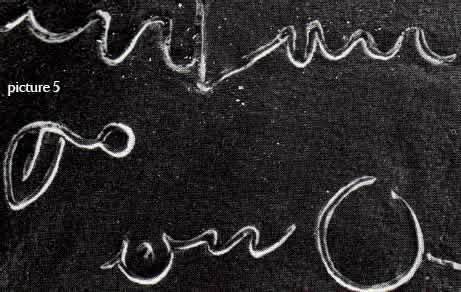 picture 5